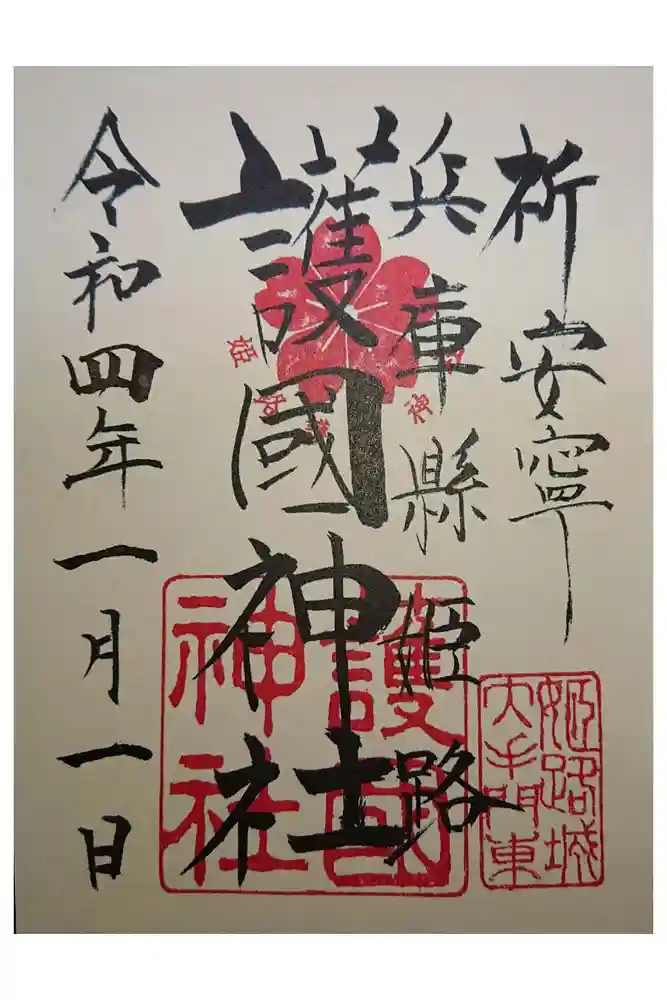 祈安寧
兵庫縣姫路
護國神社
令和四年一月一日
護國
神社
姫路城
大手門東